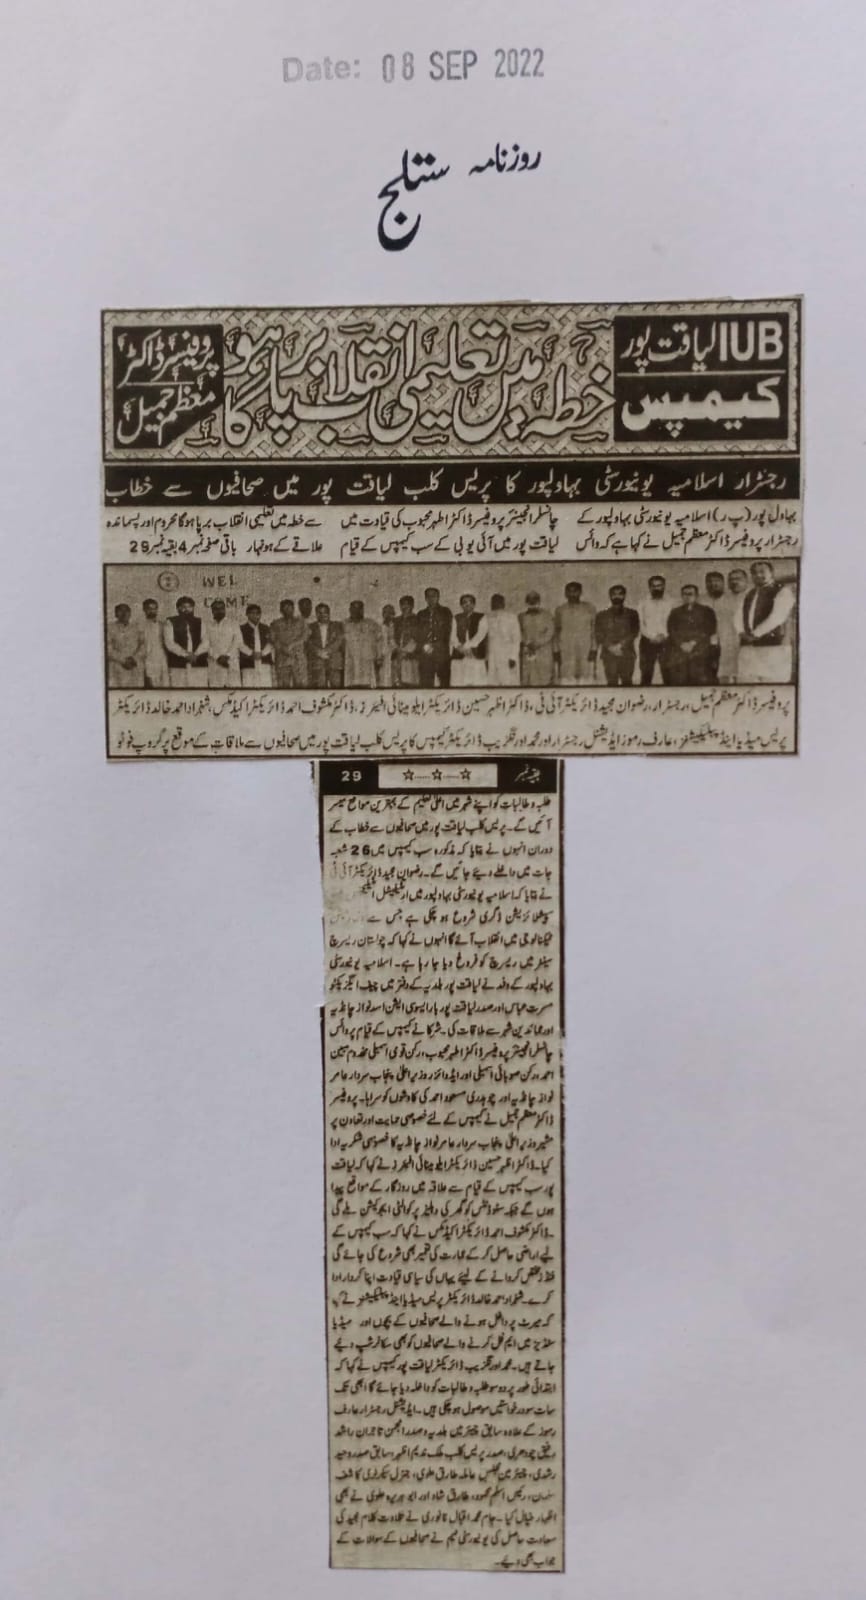 Date: 08 SEP 2022
روزنامہ ستلج
IUB لیاقت پور
کیمپس
خطہ میں تعلیمی انقلاب برپا ہو گا
پروفیسر ڈاکٹر
معظم جمیل
رجسٹرار اسلامیہ یونیورسٹی بہاولپور کا پریس کلب لیاقت پور میں صحافیوں سے خطاب
بہاول پور (پ ر) اسلامیہ یونیورسٹی بہاولپور کے
رجسٹرار پروفیسر ڈاکٹر معظم جمیل نے کہا ہے کہ وائس
چانسلر انجینئر پروفیسر ڈاکٹر اطہر محبوب کی قیادت میں
لیاقت پور میں آئی یو بی کے سب کیمپس کے قیام
سے خطہ میں تعلیمی انقلاب برپا ہوگا محروم اور پسماندہ
علاقے کے ہونہار باقی صفحہ نمبر 4 بقیہ نمبر 29
WEL
COME
پروفیسر ڈاکٹر معظم جمیل، رجسٹرار، رضوان مجید ڈائریکٹر آئی ٹی، ڈاکٹر اظہر حسین ڈائریکٹر ایلومینائی افیئرز، ڈاکٹر مکشوف احمد ڈائریکٹر اکیڈمکس، شہزاد احمد خالد ڈائریکٹر
پریس میڈیا اینڈ پبلیکیشنز، عارف رموز ایڈیشنل رجسٹرار اور محمد اورنگزیب ڈائریکٹر کیمپس کا پریس کلب لیاقت پور میں صحافیوں سے ملاقات کے موقع پر گروپ فوٹو
بقیہ نمبر ☆.....☆.....☆ 29
طلبہ و طالبات کو اپنے شہر میں اعلیٰ تعلیم کے بہترین مواقع میسر
آئیں گے۔ پریس کلب لیاقت پور میں صحافیوں سے خطاب کے
دوران انہوں نے بتایا کہ مذکورہ سب کیمپس میں 26 شعبہ
جات میں داخلے دیئے جائیں گے۔ رضوان مجید ڈائریکٹر آئی ٹی
نے بتایا کہ اسلامیہ یونیورسٹی بہاولپور میں آرٹیفیشل انٹیلیجنس
سپیشلائزیشن ڈگری شروع ہو چکی ہے جس سے
ٹیکنالوجی میں انقلاب آئے گا انہوں نے کہا کہ چولستان ریسرچ
سینٹر میں ریسرچ کو فروغ دیا جا رہا ہے۔ اسلامیہ یونیورسٹی
بہاولپور کے وفد نے لیاقت پور بلدیہ کے دفتر میں چیف ایگزیکٹو
مسرت عباس اور صدر لیاقت پور بار ایسوسی ایشن اسد نواز چانڈیہ
اور عمائدین شہر سے ملاقات کی۔ شرکا نے کیمپس کے قیام پر وائس
چانسلر انجینئر پروفیسر ڈاکٹر اطہر محبوب، رکن قومی اسمبلی مخدوم مبین
احمد، رکن صوبائی اسمبلی اور ایڈوائزر وزیر اعلیٰ پنجاب سردار عامر
نواز چانڈیہ اور چوہدری مسعود احمد کی کاوشوں کو سراہا۔ پروفیسر
ڈاکٹر معظم جمیل نے کیمپس کے لئے خصوصی حمایت اور تعاون پر
مشیر وزیر اعلیٰ پنجاب سردار عامر نواز چانڈیہ کا خصوصی شکریہ ادا
کیا۔ ڈاکٹر اظہر حسین ڈائریکٹر ایلومینائی افیئرز نے کہا کہ لیاقت
پور سب کیمپس کے قیام سے علاقہ میں روزگار کے مواقع پیدا
ہوں گے جبکہ سٹوڈنٹس کو گھر کی دہلیز پر کوالٹی ایجوکیشن ملے گی
۔ ڈاکٹر مکشوف احمد ڈائریکٹر اکیڈمکس نے کہا کہ سب کیمپس کے
لیے اراضی حاصل کر کے عمارت کی تعمیر بھی شروع کی جائے گی
فنڈ مختص کروانے کے لیئے یہاں کی سیاسی قیادت اپنا کردار ادا
کرے۔ شہزاد احمد خالد ڈائریکٹر پریس میڈیا اینڈ پبلیکیشنز نے کہا
کہ میرٹ پر داخل ہونے والے صحافیوں کے بچوں اور میڈیا
سٹڈیز میں ایم فل کرنے والے صحافیوں کو بھی سکالرشپ دیئے
جاتے ہیں۔ محمد اورنگزیب ڈائریکٹر لیاقت پور کیمپس نے کہا کہ
ابتدائی طور پر دو سو طلبہ و طالبات کو داخلہ دیا جائے گا ابھی تک
سات سو درخواستیں موصول ہو چکی ہیں۔ ایڈیشنل رجسٹرار عارف
رموز کے علاوہ سابق چیئرمین بلدیہ و صدر انجمن تاجران راشد
رفیق چودھری، صدر پریس کلب ملک ندیم اظہر، سابق صدر وحید
رشدی، چیئرمین مجلس عاملہ طارق علوی، جنرل سیکرٹری کاشف
سلمان، رئیس اسلم محمود، طارق شاد اور ابو ہریرہ علوی نے بھی
اظہار خیال کیا۔ جام محمد اقبال نے تلاوت کلام مجید کی
سعادت حاصل کی یونیورسٹی ٹیم نے صحافیوں کے سوالات کے
جواب بھی دیے۔